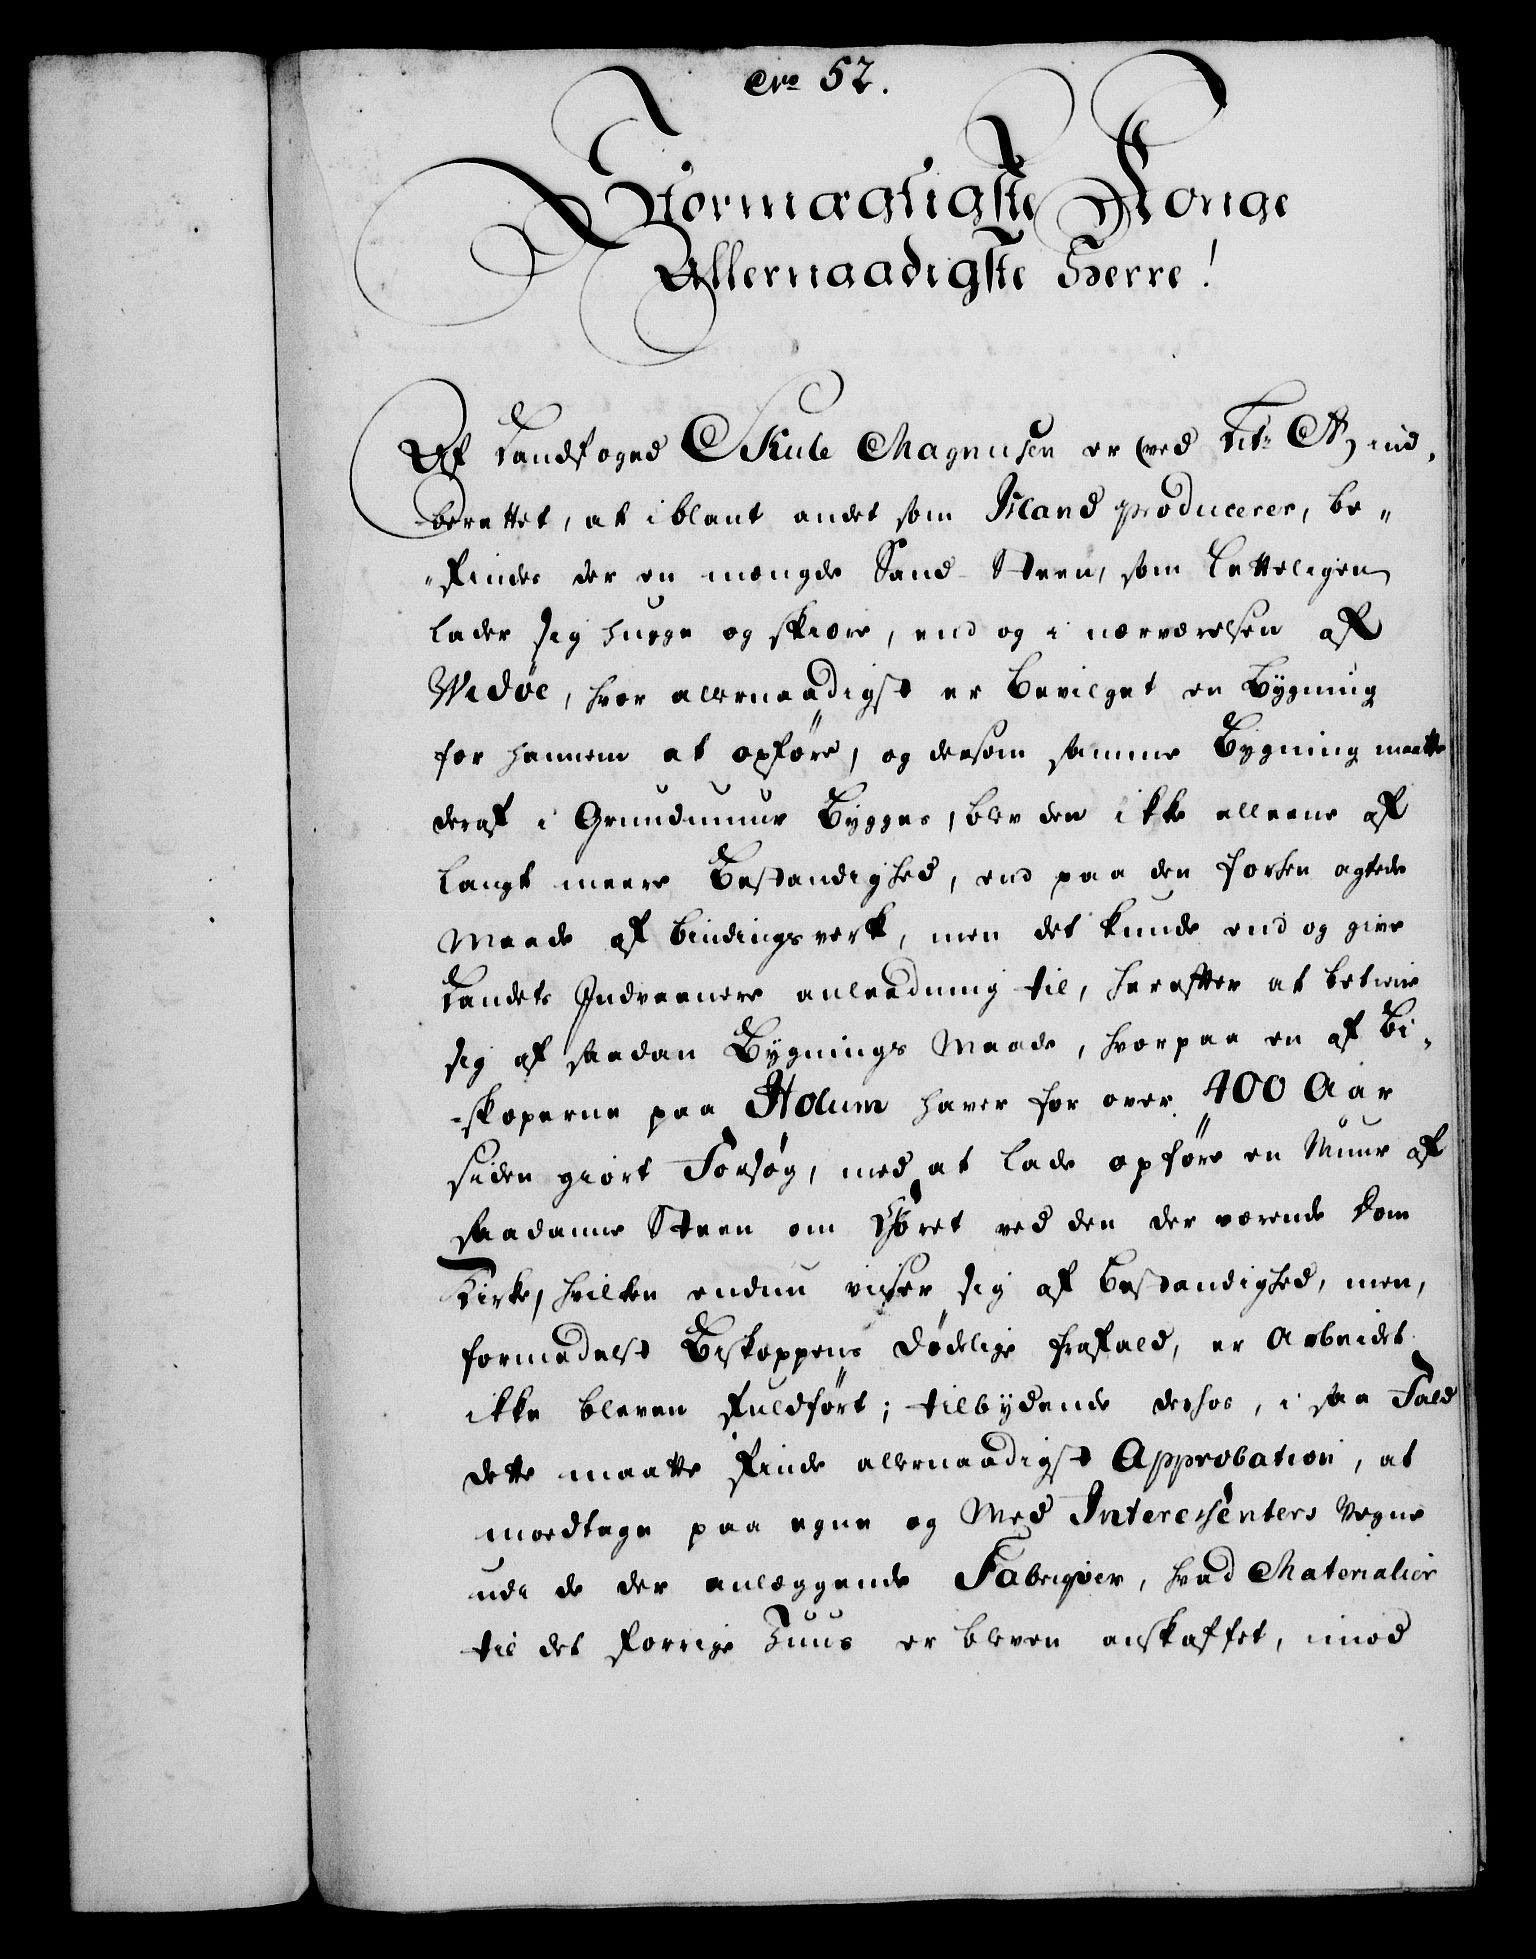 No 52.
Stormægtigste Konge
Allernaadigste Herre!
Af Landfoged Skule Magnusen er (ved Lit: A) ind-
berettet, at iblant andet som Island producerer, be-
-findes der en mængde Sand-Steen, som Letteligen
lader sig hugge og skiære, end og i nærværelsen af
Widöe, hvor allernaadigst er bevilget en Bÿgning
for hannem at opføre, og dersom samme Bygning maatte
deraf i Grundmuur Bygges, blev den ikke alleene af
langt meere Bestandighed, end paa den forhen agtede
Maade af bindingsverk, men det kunde end og give
Landets Indvaanere anleedning til, herefter at betiene
sig af saadan Bÿgnings Maade, hvorpaa en af Bi-
-skoperne paa Holum haver for over 400 Aar
siden giort Forsøg, med at lade opføre en Muur af
saadanne Steen om Choret ved den der værende Dom
Kirke, hvilken endnu viiser sig af bestandighed, men,
formedelst Biskoppens dødelige frafald, er Arbeidet
ikke bleven fuldført; tilbÿdende derhos, i saa Fald
dette maatte finde allernaadigst Approbation, at
modtage paa egne og Med Interessenters Vegne
udi de der anlæggende Fabriqver, hvad Materialier
til det forrige Huus er bleven anskaffet, imod